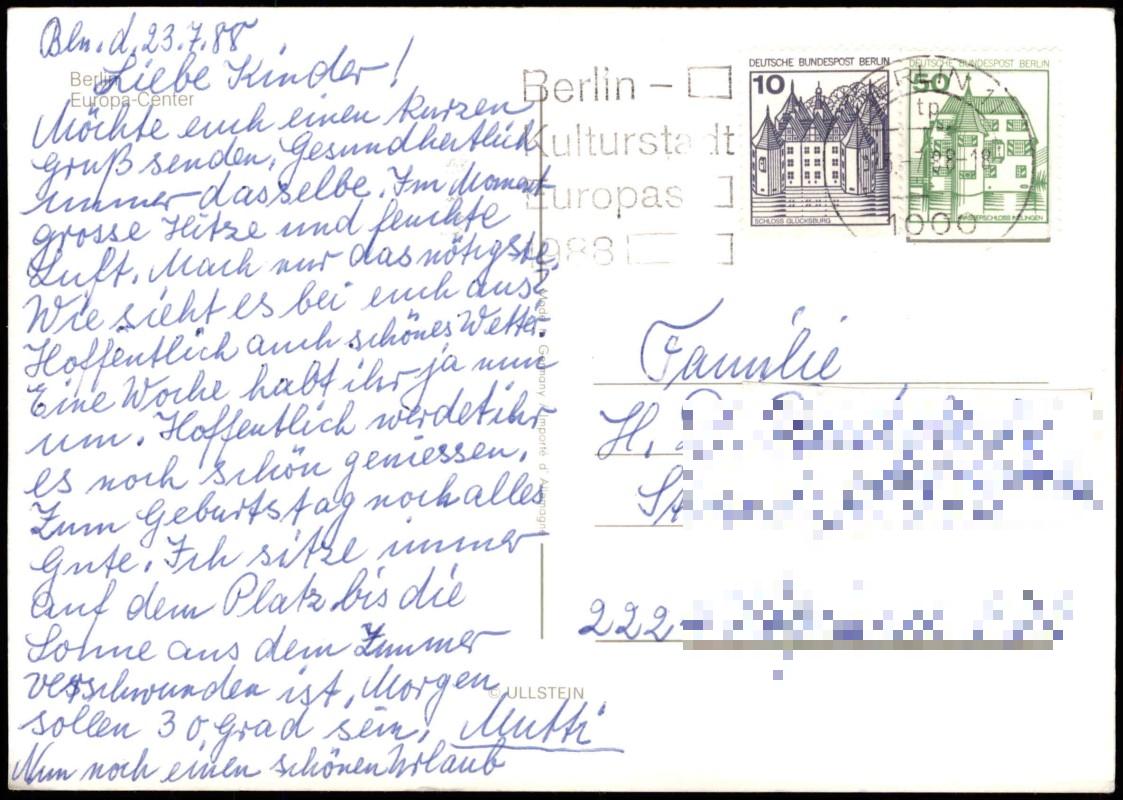 Bln. d. 23.7.88
Liebe Kinder!
Möchte euch einen kurzen
gruß senden, Gesundheitlich
immer dasselbe. Im Moment
grosse Hitze und feuchte
Luft. Mach nur das nötigste.
Wie sieht es bei euch aus?
Hoffentlich auch schönes Wetter.
Eine Woche habt ihr ja nun
um. Hoffentlich werdet ihr
es noch schön geniessen.
Zum Geburtstag noch alles
Gute. Ich sitze immer
auf dem Platz bis die
Sonne aus dem Zimmer
verschwunden ist, Morgen
sollen 30 grad sein,
Mutti
Nun noch einen schönen Urlaub
Berlin
Europa-Center
Made in Germany / Importé d'Allemagne
© ULLSTEIN
Berlin –
Kulturstadt
Europas
1988
DEUTSCHE BUNDESPOST BERLIN
10
SCHLOSS GLÜCKSBURG
DEUTSCHE BUNDESPOST BERLIN
50
WASSERSCHLOSS INZLINGEN
BERLIN
tp
1000
Familie
H.
St
222